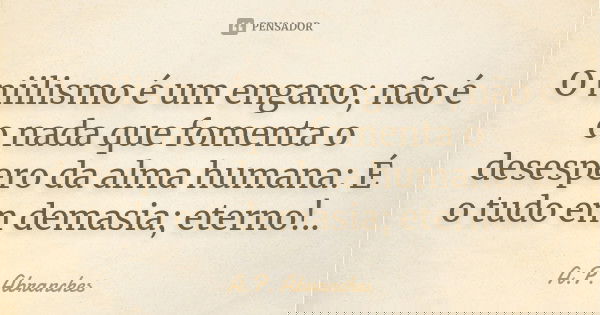 PENSADOR
O niilismo é um engano; não é
o nada que fomenta o
desespero da alma humana: É
o tudo em demasia; eterno!..
A. P. Abranches